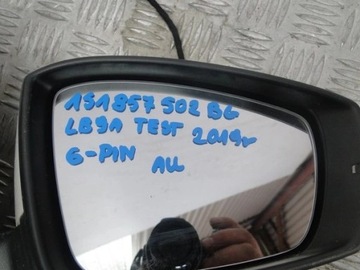 1S1857502 BG
LB9A TEST 2019r
6-PIN ALL